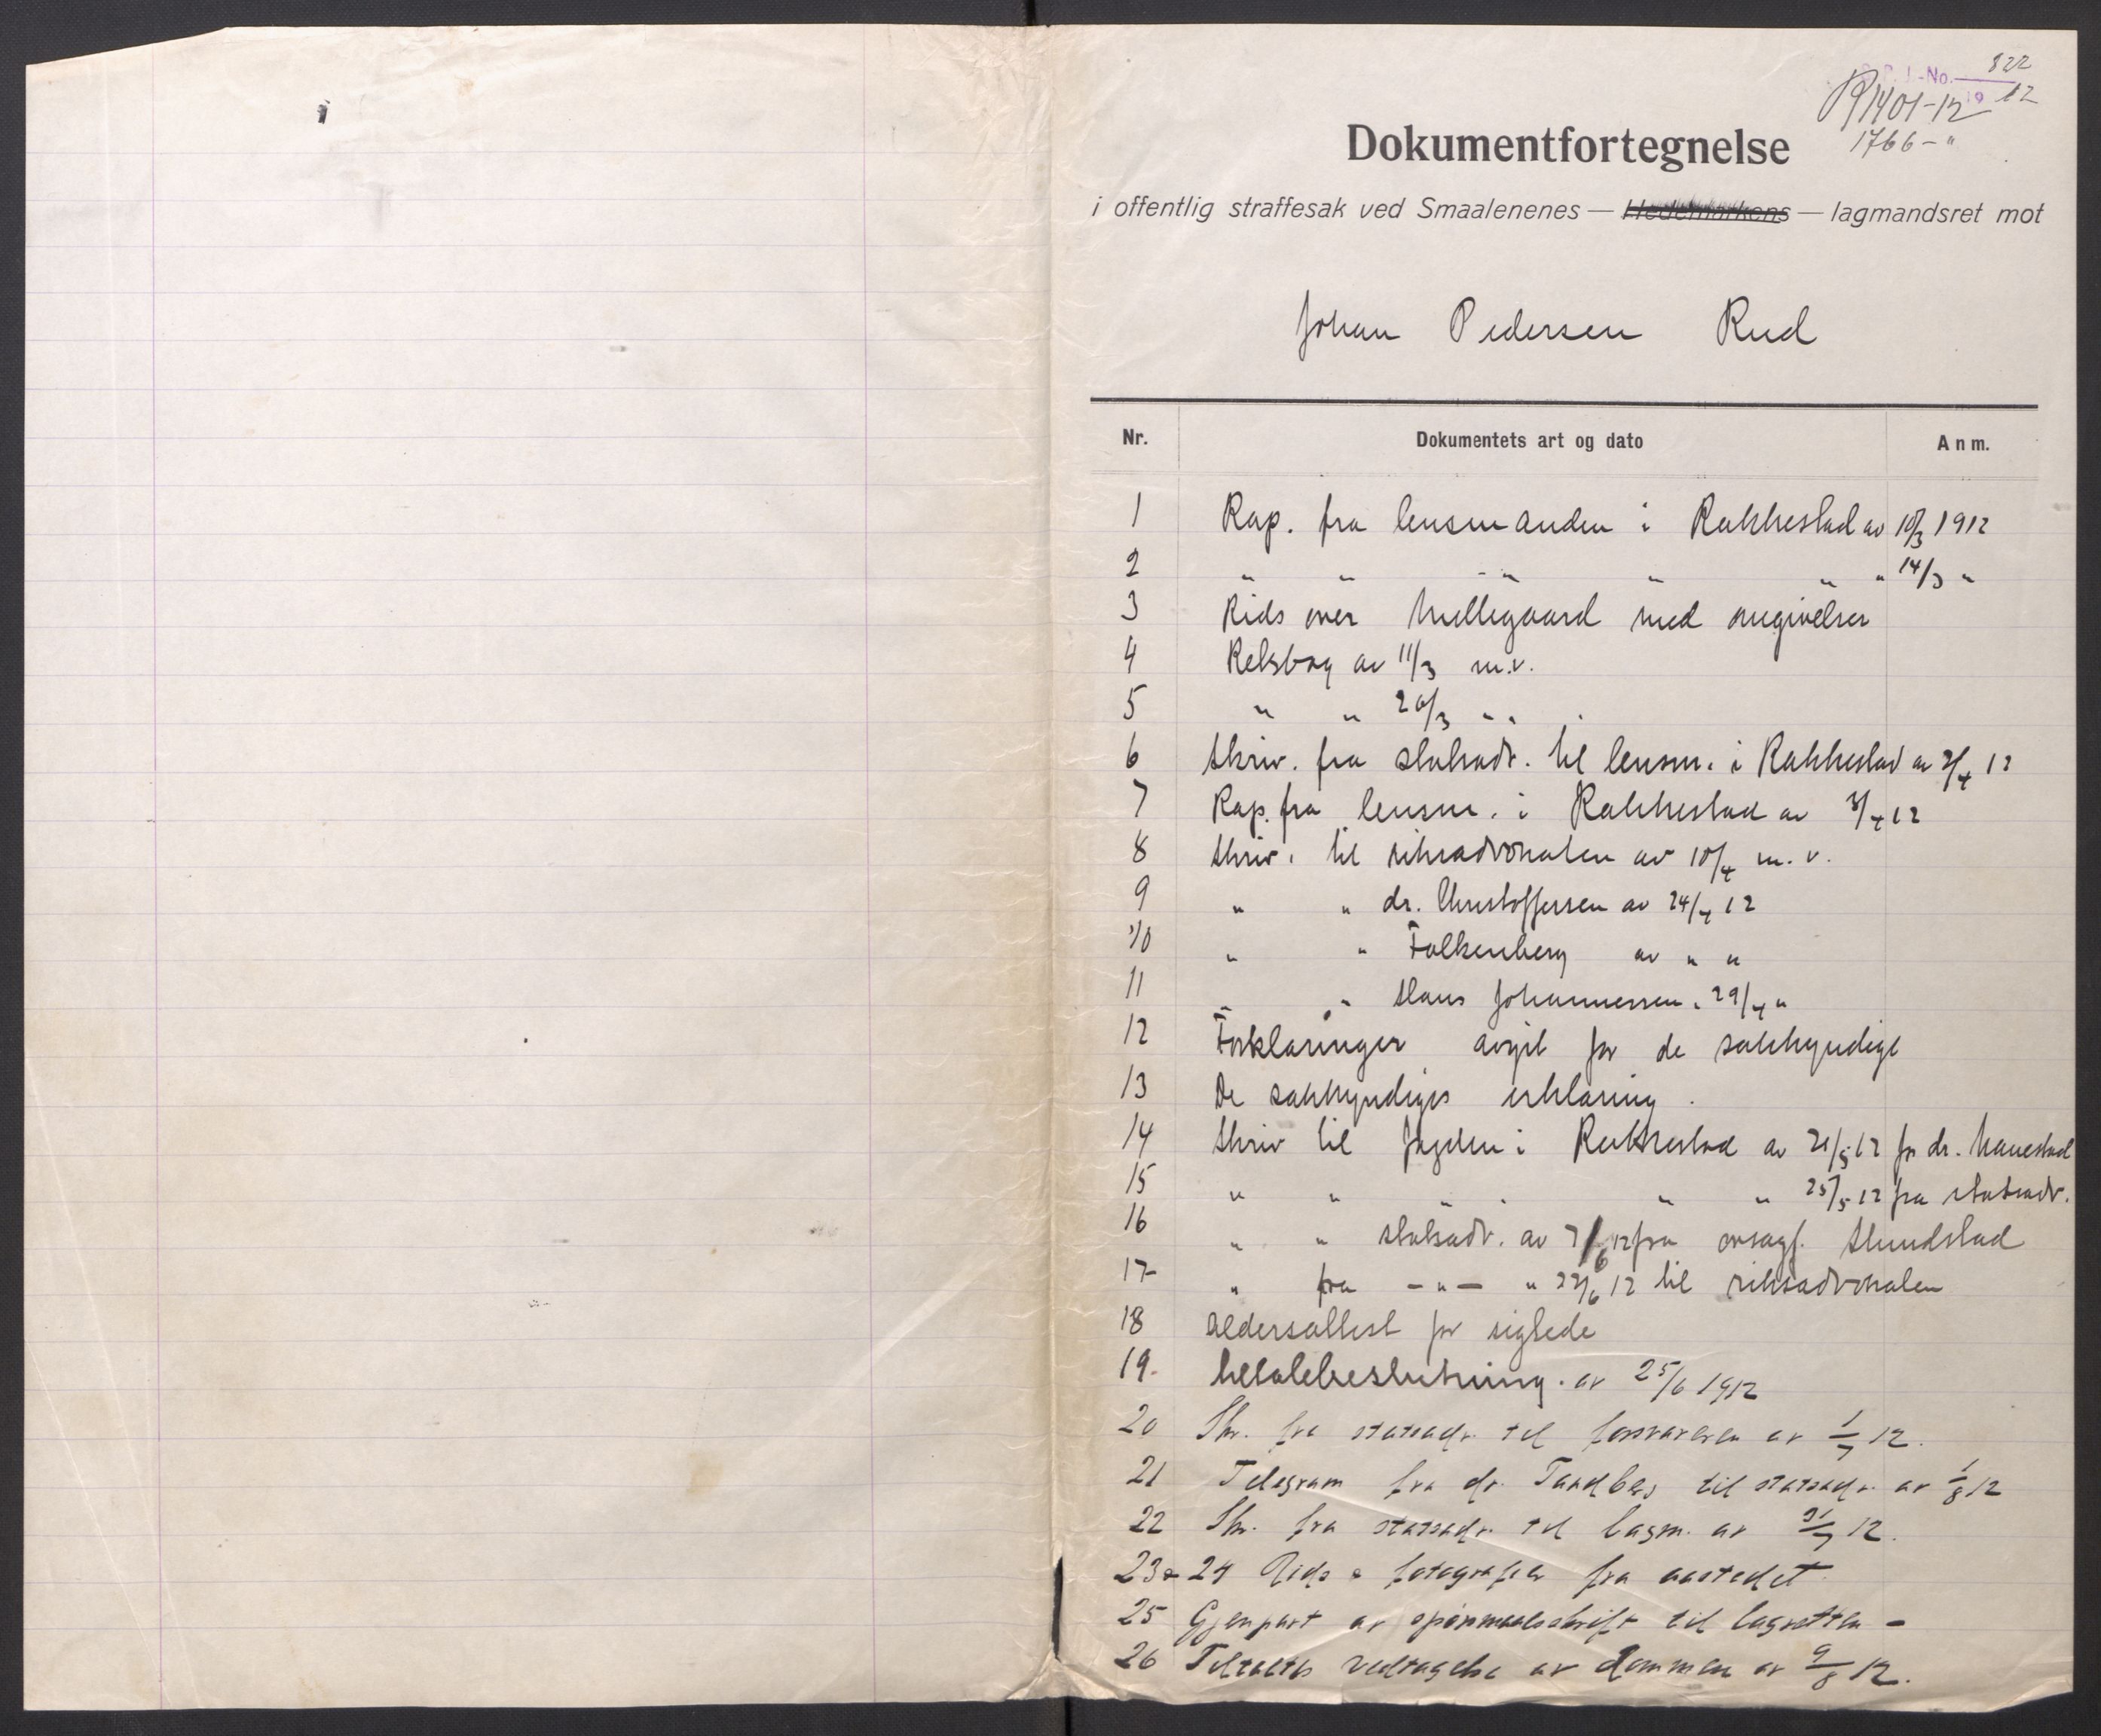 P. J.-No. 822
19 12
R 1401-12
1766 - "
Dokumentfortegnelse
i offentlig straffesak ved Smaalenenes — Hedemarkens — lagmandsret mot
Johan Pedersen Rud
Nr. Dokumentets art og dato Anm.
1 Rap. fra lensmanden i Rakkestad av 10/3 1912
2 " " " " " " 14/3 "
3 Rids over Mellegaard med omgivelser
4 Retsbog av 11/3 m.v.
5 " " 26/3 " "
6 Skriv. fra statsadv. til lensm. i Rakkestad av 2/4 12
7 Rap. fra lensm. i Rakkestad av 3/4 12
8 Skriv. til riksadvokaten av 10/4 m. v.
9 " " dr. Christoffersen av 24/4 12
10 " " Falkenberg av " "
11 " " Hans Johannessen " 29/4 "
12 Forklaringer avgit for de sakkyndige
13 De sakkyndiges erklæring.
14 Skriv til fogden i Rakkestad av 21/5 12 fra dr. Hanestad
15 " " " " " " 25/5 12 fra statsadv.
16 " " statsadv. av 7/6 12 fra ovsagf. Skundstad
17 " fra — " — " 22/6 12 til riksadvokaten
18 Aldersattest for sigtede
19. Tiltalebeslutning. av 25/6 1912
20 Skr. fra statsadv. til forsvareren av 1/7 12.
21 Telegram fra dr. Tandberg til statsadv. av 1/8 12
22 Skr. fra statsadv. til lagm. av 31/7 12.
23 & 24 Rids & fotografier fra aastedet
25 Gjenpart av spørsmaalsskrift til lagretten -
26 Tiltaltes vedtagelse av dommen av 9/8 12.